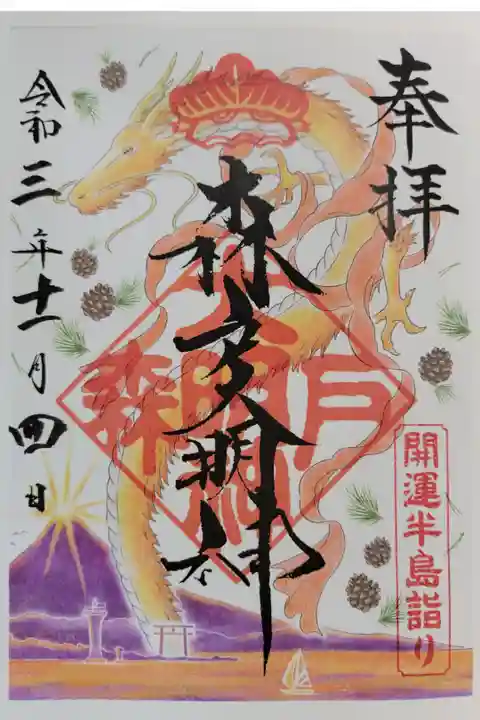 奉拝
開運半島詣り
森戸大明神
令和三年十一月四日